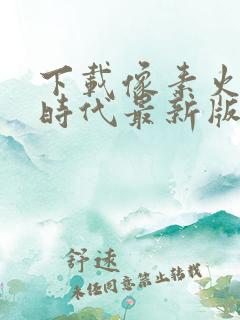 下載像素火
時代最新版
舒速
未经同意禁止转载